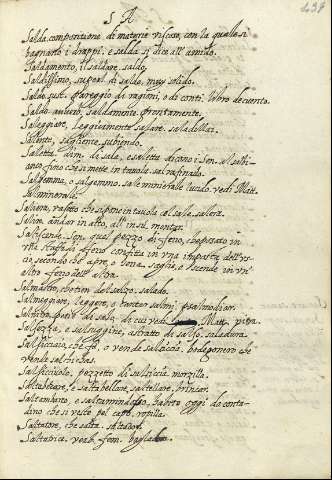 S A
Salda, composizione di materie viscose, con la quale si
bagnano i drappi, e salda si dice all' amido.
Saldamento, il saldare, saldo.
Saldissimo, superl. di saldo, muy solido.
Saldo, sust. pareggio di ragioni, o di conti, libro de cuenta.
Saldo, auverb. saldamente, prontamente.
Saleggiare, leggiermente salare, saladillar.
Salente, sagliente, subiendo.
Saletta, dim. di sale, e saletta dicono i Sen. al sale bi-
anco fino che si mette in tavola, sal rafinado.
Salgemma, o salgemmo, sale minerale lucido, vedi Matt.
Sal mineral.
Saliera, vasetto che si pone in tavola col sale, salera.
Salire, andar in alto, all' insù, montar.
Saliscende, Sen. quel pezzo di ferro, che posato in
una staffa di ferro confitta in una imposta dell' us-
cio, secondo che apre, o serra, saglie, e scende in un'
altro ferro dell' altra.
Salmastro, che tien del salso, salado.
Salmeggiare, leggere, e cantar salmi, psalmodiar.
Salnitro, spezie di sale, di cui vedi Matt. pitra.
Salsezza, e salsuggine, astratto di salso, saladura.
Salsicciaio, che fa, o vende salsiccia, bodegonero che
vende salchichas.
Salsicciuolo, pezzetto di salsiccia, morzilla.
Saltabeccare, e saltabellare, saltellare, brincar.
Saltambarco, e saltamindosso, habito oggi da conta-
dino che si veste pel capo, ropilla.
Saltatore, che salta, saltador.
Saltatrice, verb. fem.